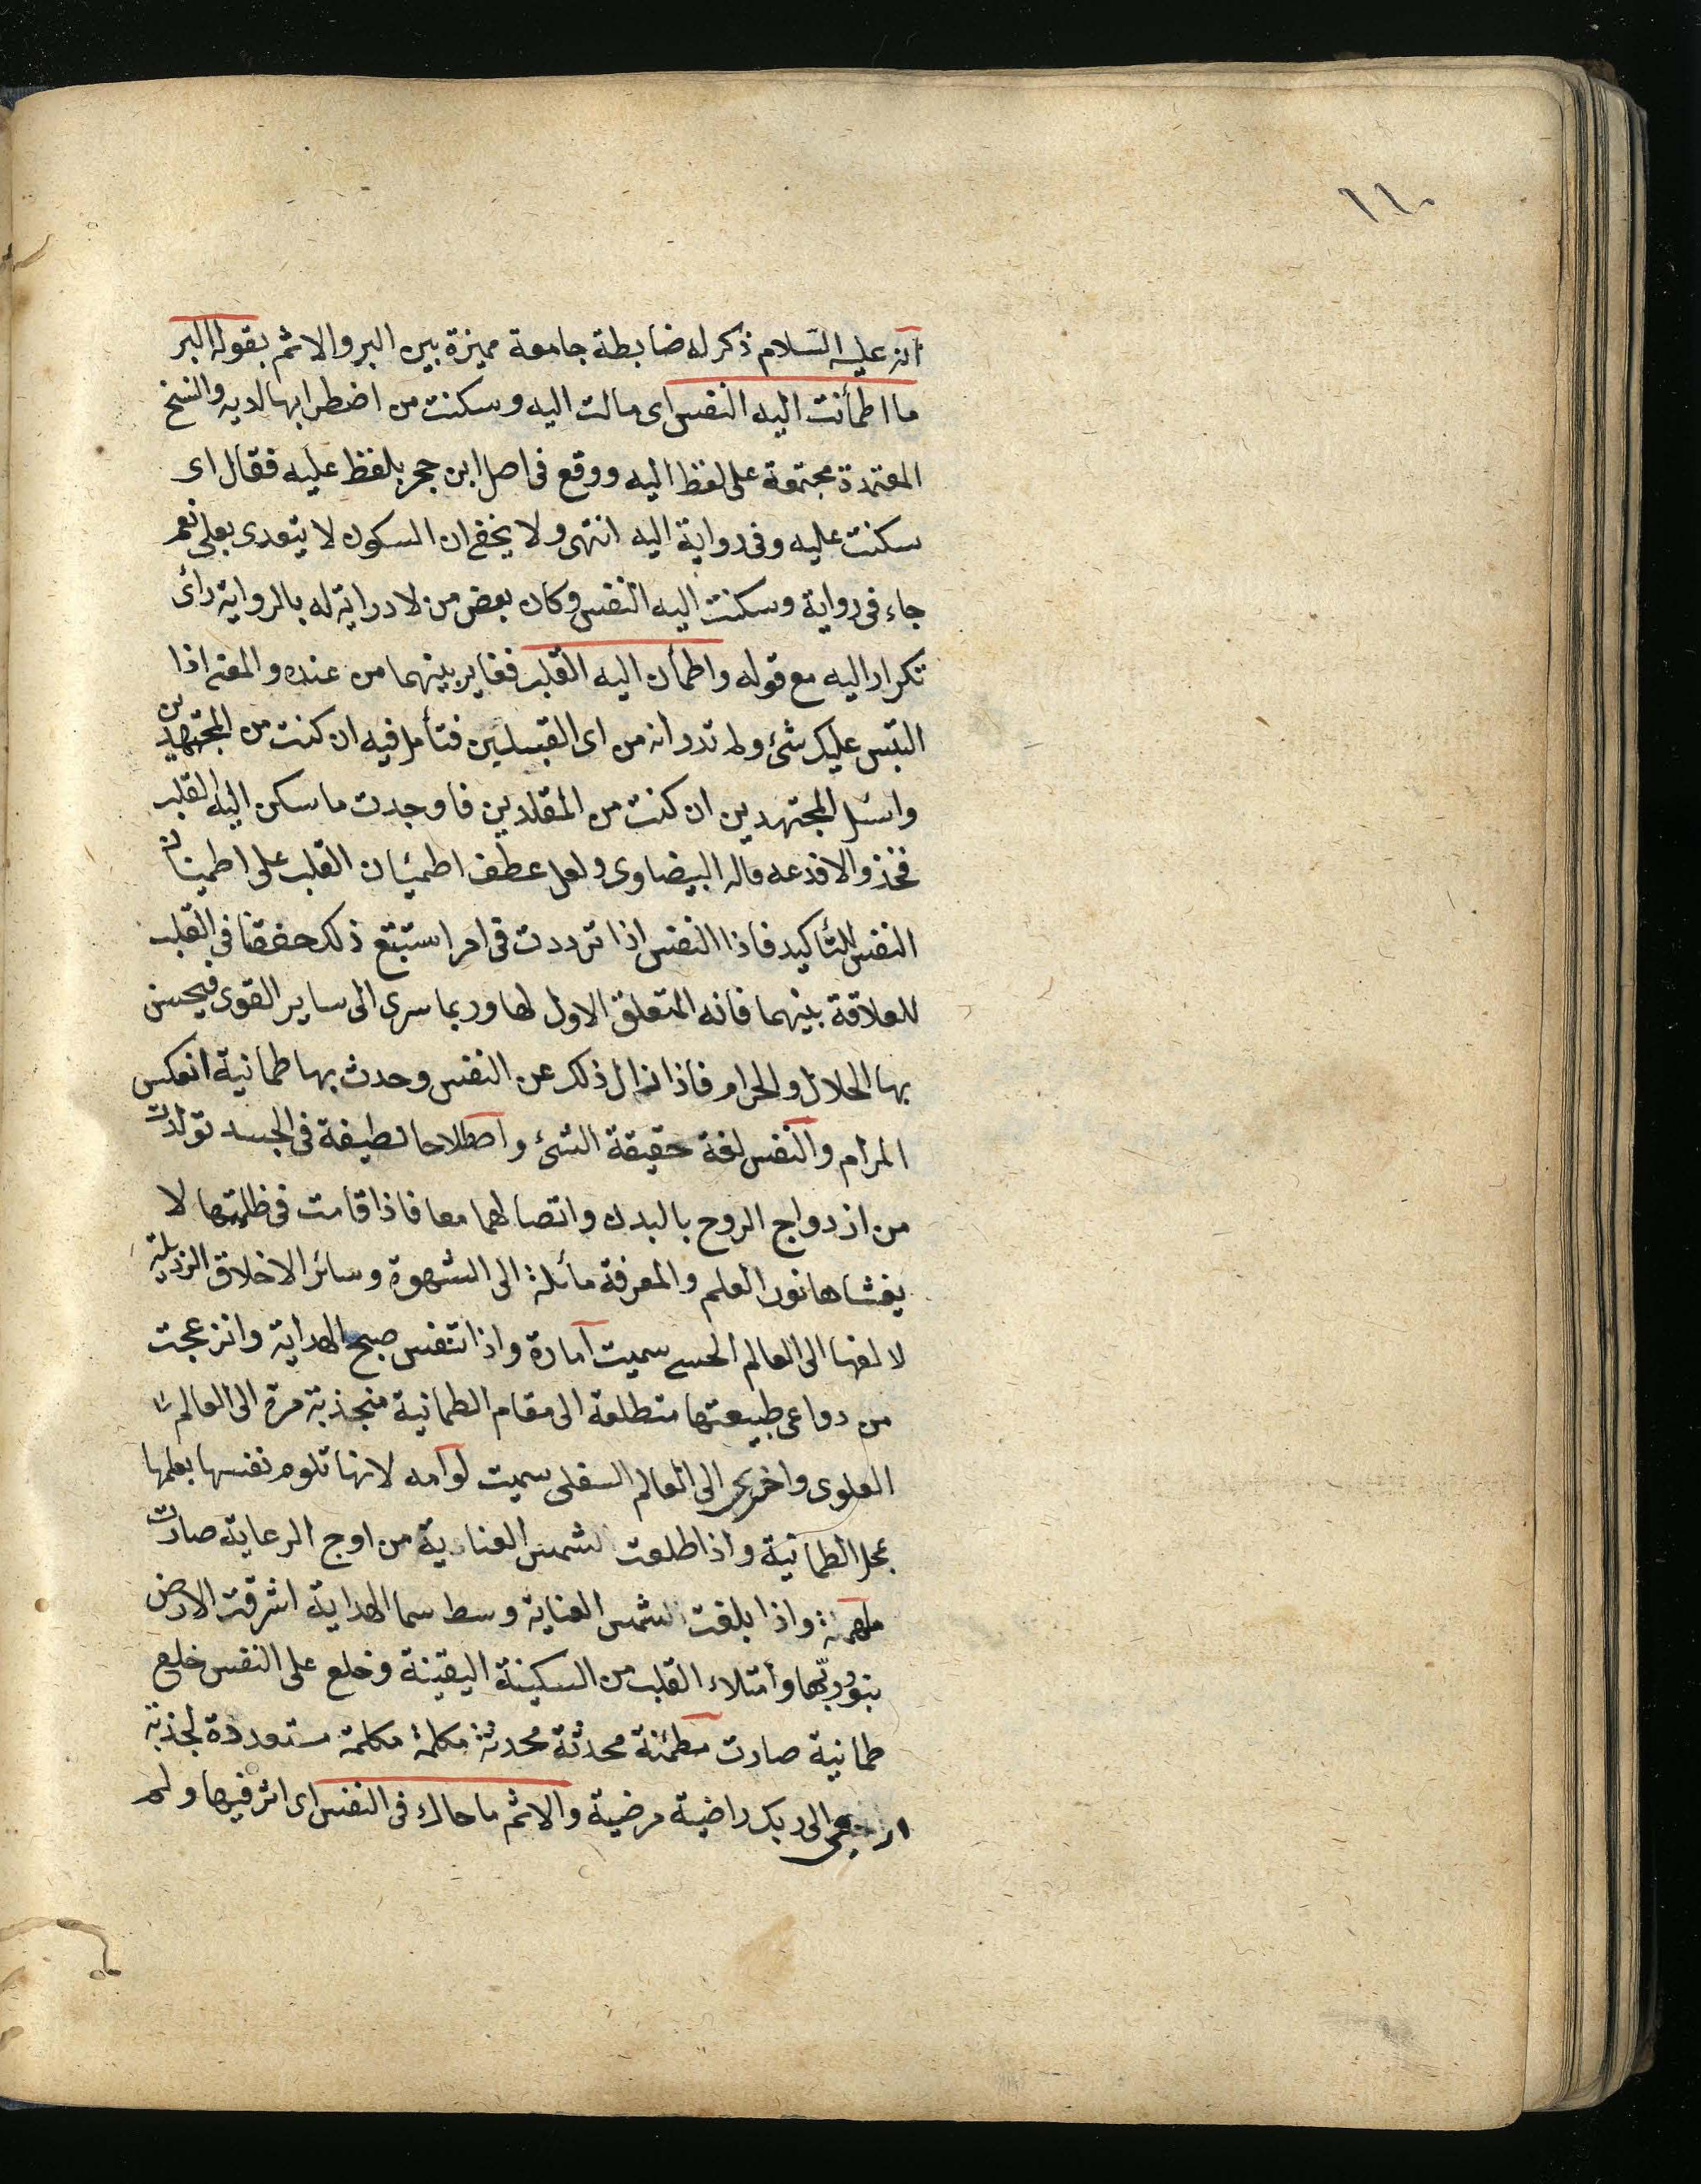 ١١٠
انه عليه السلام ذكر له ضابطة جامعة مميزة بين البر والاثم بقوله البر
ما اطمأنت اليه النفس اى مالت اليه وسكنت من اضطرابها لديه والنسخ
المعتمدة مجتمعة على لفظ اليه ووقع فى اصل ابن حجر بلفظ عليه فقال اى
سكنت عليه وفى رواية اليه انتهى ولا يخفى ان السكون لا يتعدى بعلى نعم
جاء فى رواية وسكنت اليه النفس وكان بعض من لا دراية له بالرواية رأى
تكرار اليه مع قوله واطمأن اليه القلب فغاير بينهما من عنده والمعنى اذا
التبس عليك شئ ولم تدر انه من اى القبيلين فتأمل فيه ان كنت من المجتهدين
واسئل المجتهدين ان كنت من المقلدين فاوجدت ما سكن اليه القلب
فخذ والا فدعه قاله البيضاوى ولعل عطف اطمئنان القلب على اطمينان
النفس للتأكيد فاذا النفس اذا ترددت فى امر استتبع ذلك خفقا فى القلب
للعلاقة بينهما فانه المتعلق الاول لها وربما سرى الى ساير القوى فيحسن
بها الحلال والحرام فاذا زال ذلك عن النفس وحدث بها طمانية انعكس
المرام والنفس لغة حقيقة الشئ واصطلاحا لطيفة فى الجسد تولدت
من ازدواج الروح بالبدن واتصالهما معا فاذا قامت فى ظلمتها لا
يغشاها نور العلم والمعرفة مائلة الى الشهوة وسائر الاخلاق الرذيلة
لالفها الى العالم الحسى سميت امارة واذا تنفس صبح الهداية وانزعجت
من دواعى طبيعتها متطلعة الى مقام الطمانية منجذبة مرة الى العالم
العلوى واخرى الى العالم السفلى سميت لوامه لانها تلوم نفسها بعلمها
بمحل الطمانية واذا طلعت الشمس العنادية من اوج الرعاية صارت
ملهمة واذا بلغت الشمس العناية وسط سما الهداية اشرقت الارض
بنور ربها وامتلاء القلب من السكينة اليقينة وخلع على النفس خلع
طمانية صارت مطمئنة محدثة محدثة مكلمة مكلمة مستعددة لجذبة
ارجعى الى ربك راضية مرضية والاثم ما حاك فى النفس اى اثر فيها ولم